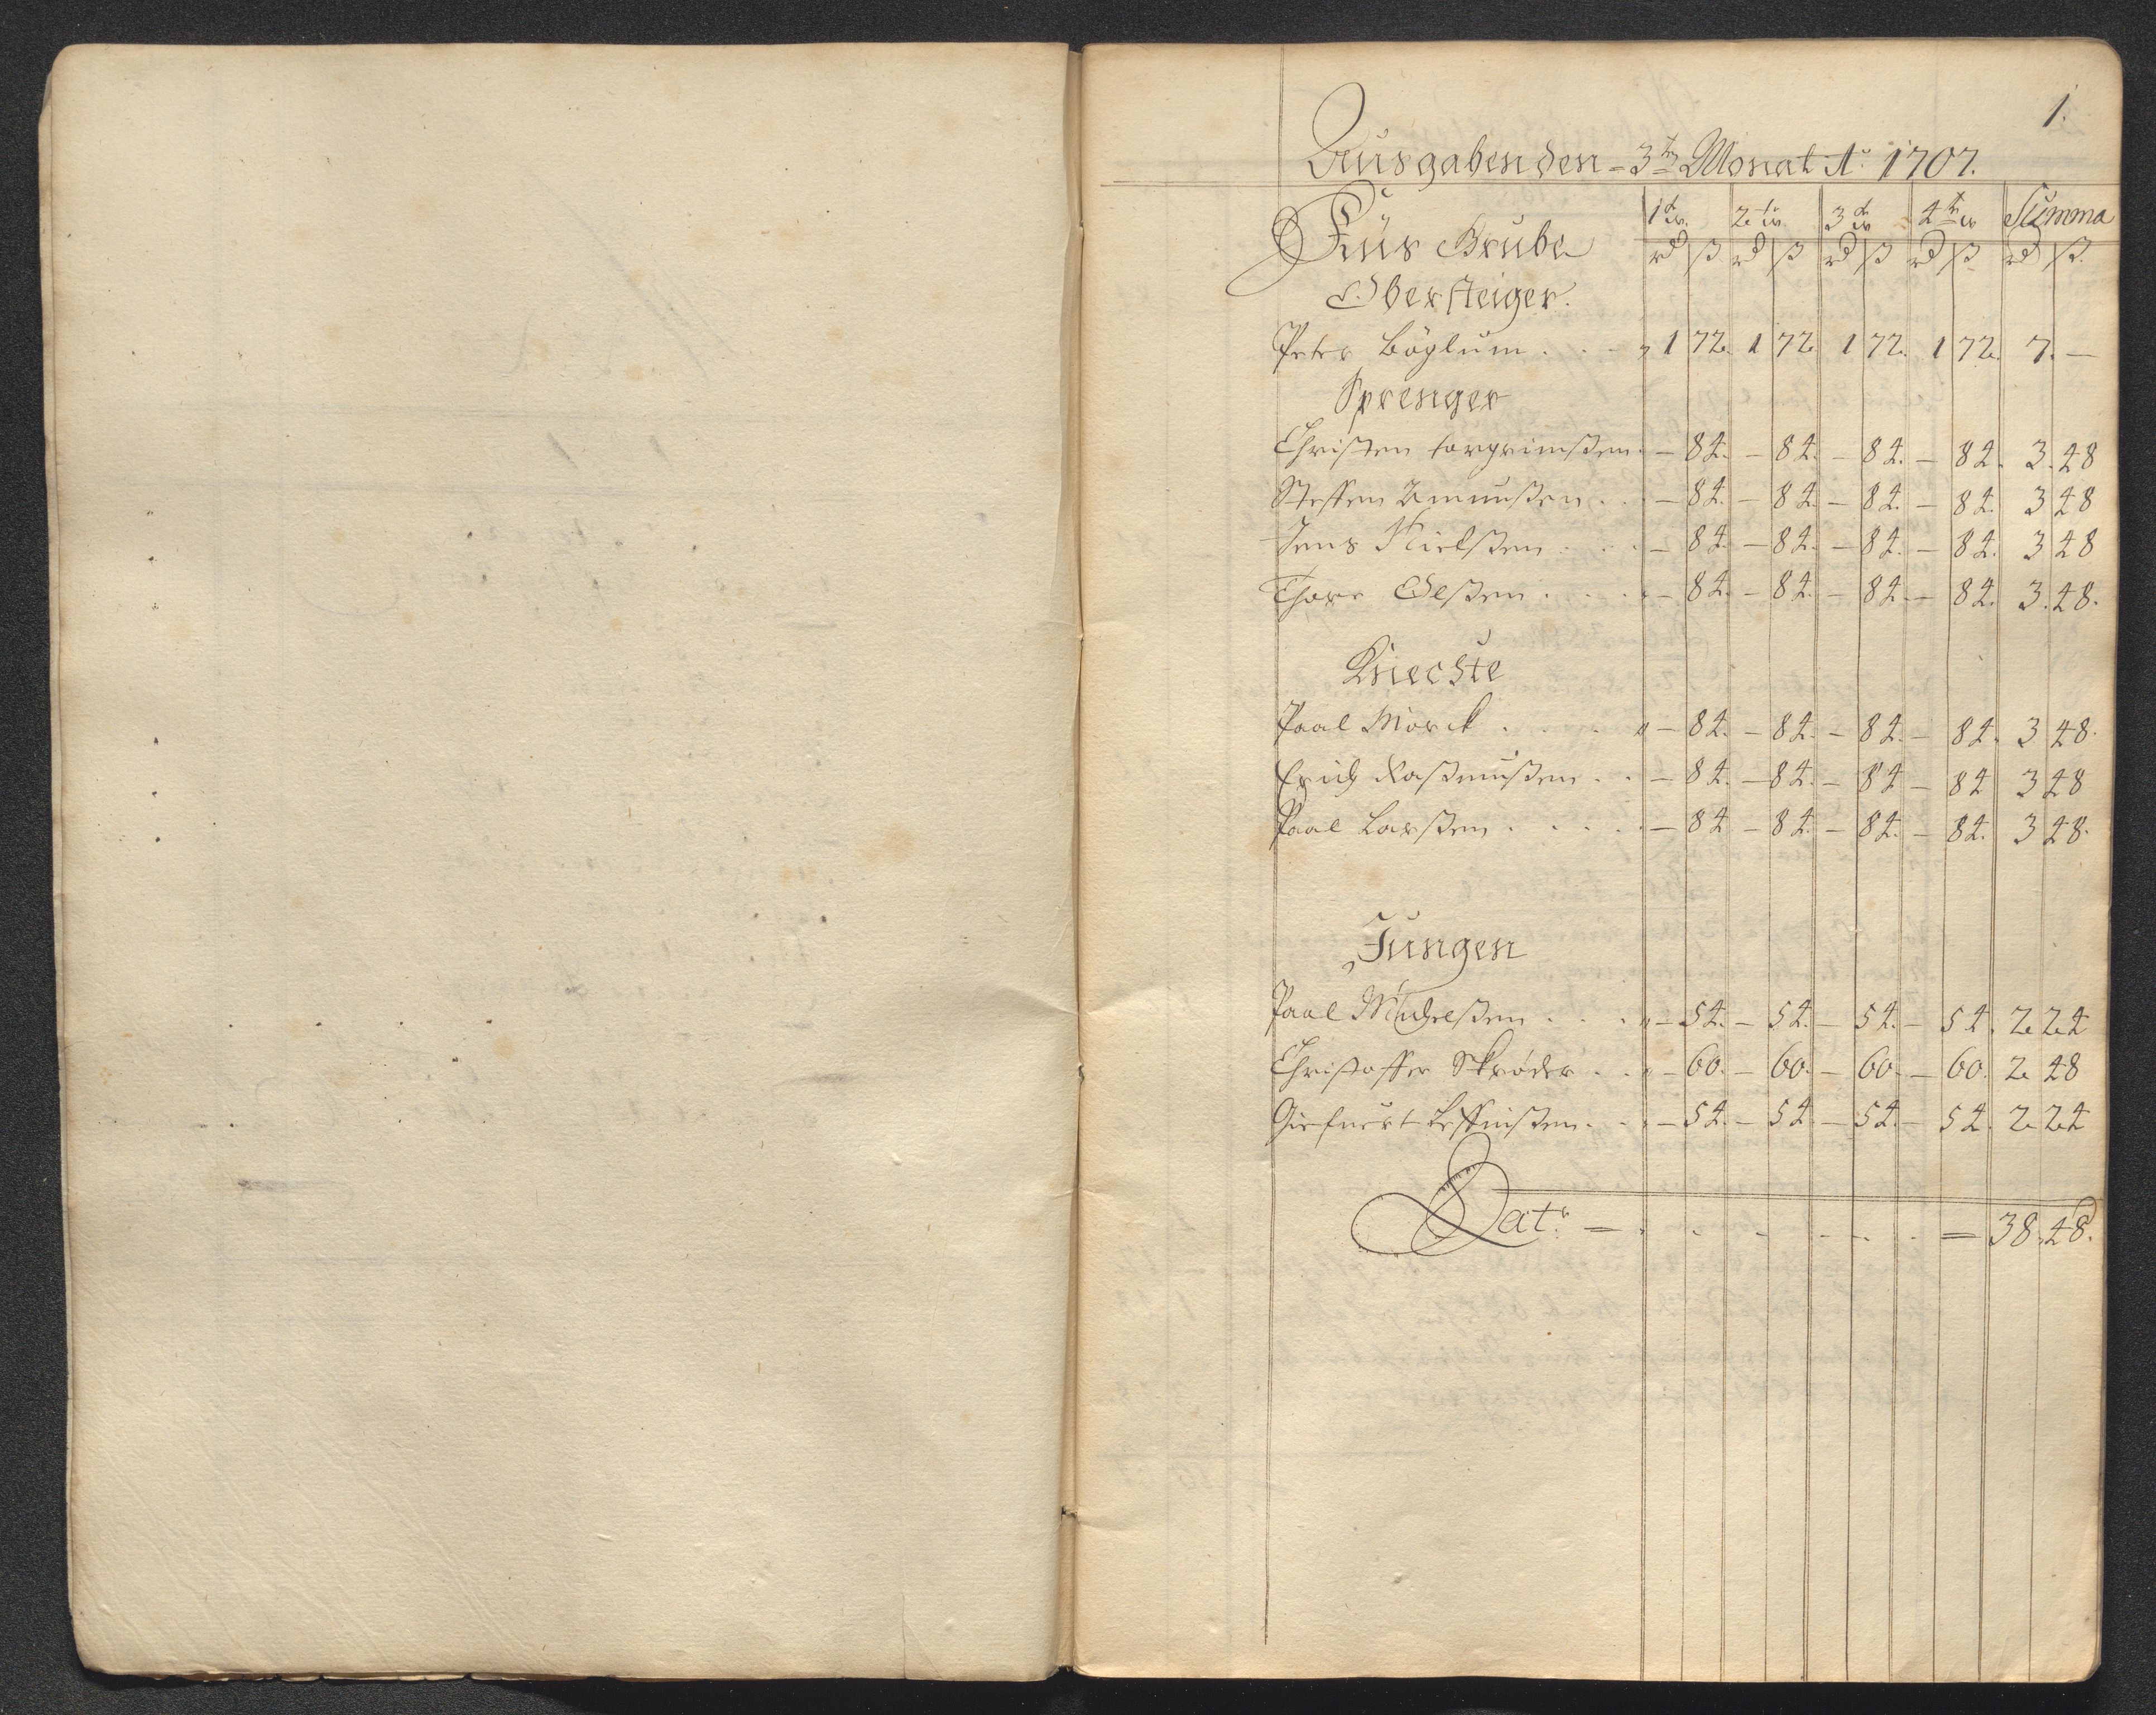 1.
Ausgaben den 3tn Monat Ao 1707.
1t w. 2t w 3t w 4tn w Summa
Füs Grube rd ß rd ß rd ß rd ß rd ß
Obersteiger.
Peter Böglum . . . 1 72. 1 72 1 72. 1 72. 7. —
Sprenger
Christen torgrimßen. — 84. — 84. — 84. — 84. 3. 48
Steffen Amunßen . . — 84. — 84. — 84. — 84. 3 48
Jens Nielßen . . . — 84. — 84. — 84. — 84. 3 48
Thore Olßen . . . . — 84. — 84. — 84. — 84. 3. 48.
Knechte
Paal Morck . . . . — 84. — 84. — 84. — 84. 3 48.
Erich Raßmußen . . — 84. — 84. — 84 — 84 3 48
Paal Larßen . . . . — 84 — 84. — 84. — 84. 3 48.
Jungen
Paal Michelßen . . . — 54. — 54. — 54. — 54. 2 24
Christoffer Skrøder . . — 60. — 60. — 60. — 60. 2 48
. . — 54. — 54 — 54. — 54. 2 24
Lat: = . . . . . = 38. 48.